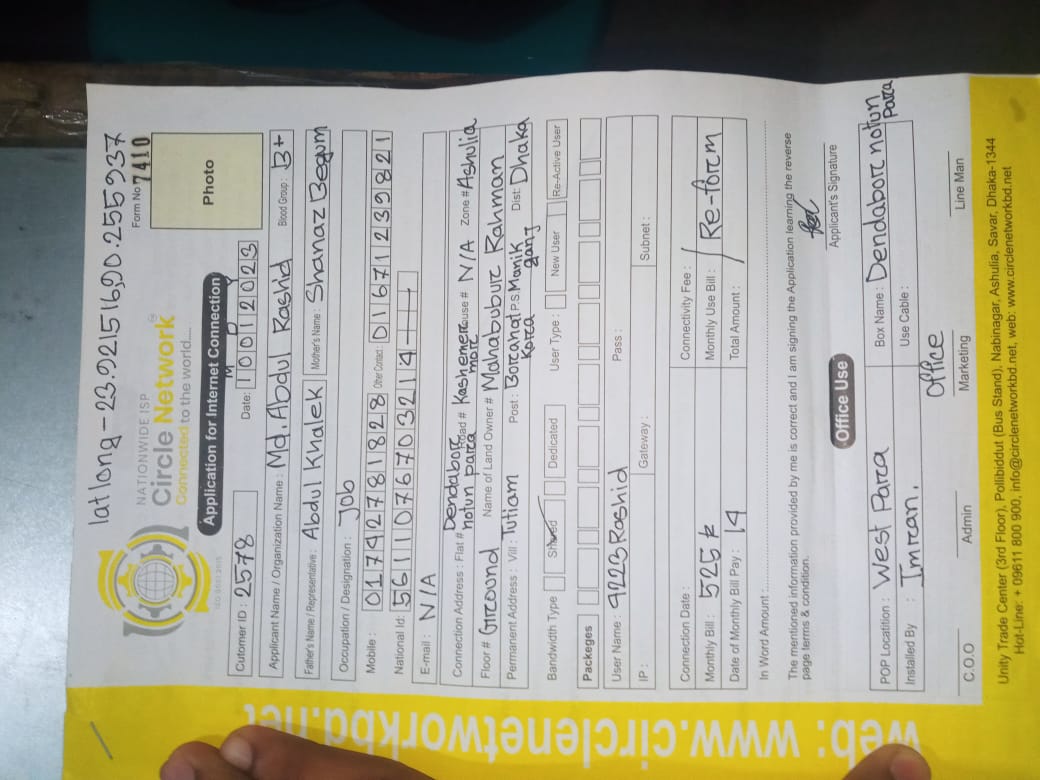 latlong-23.9215169,90.255937
NATIONWIDE ISP
Circle Network
Connected to the world....
Form No 7410
Photo
Application for Internet Connection
Cutomer ID : 2578
Date: 10012023
Applicant Name / Organization Name : Md. Abdul Rashid Blood Group : B+
Father's Name / Representative : Abdul Khalek Mother's Name : Shanaz Begum
Occupation / Designation : Job
Mobile : 01742781828 Other Contact : 01671239821
National Id: 5611107670 3214
E-mail : N/A
Connection Address : Flat # Dendabor notun para Road # Kashemer more House # N/A Zone # Ashulia
Floor # Ground Name of Land Owner # Mahabubur Rahman
Permanent Address : Vill : Tutiam Post : Borangal P.S. Manikganj Dist: Dhaka
Bandwidth Type Shared Dedicated User Type : New User Re-Active User
Packeges
User Name : 9223Rashid Pass :
IP : Gateway : Subnet :
Connection Date : Connectivity Fee :
Monthly Bill : 525 Monthly Use Bill : Re-form
Date of Monthly Bill Pay : 14 Total Amount :
In Word Amount :
The mentioned information provided by me is correct and I am signing the Application learning the reverse
page terms & condition.
Applicant's Signature
Office Use
POP Locatition : West Para Box Name : Dendabor notun para
Installed By : Imran. Use Cable :
office
C.O.O Admin Marketing Line Man
Unity Trade Center (3rd Floor), Pollibiddut (Bus Stand), Nabinagar, Ashulia, Savar, Dhaka-1344
Hot-Line: + 09611 800 900, info@circlenetworkbd.net, web: www.circlenetworkbd.net
web: www.circlenetworkbd.net